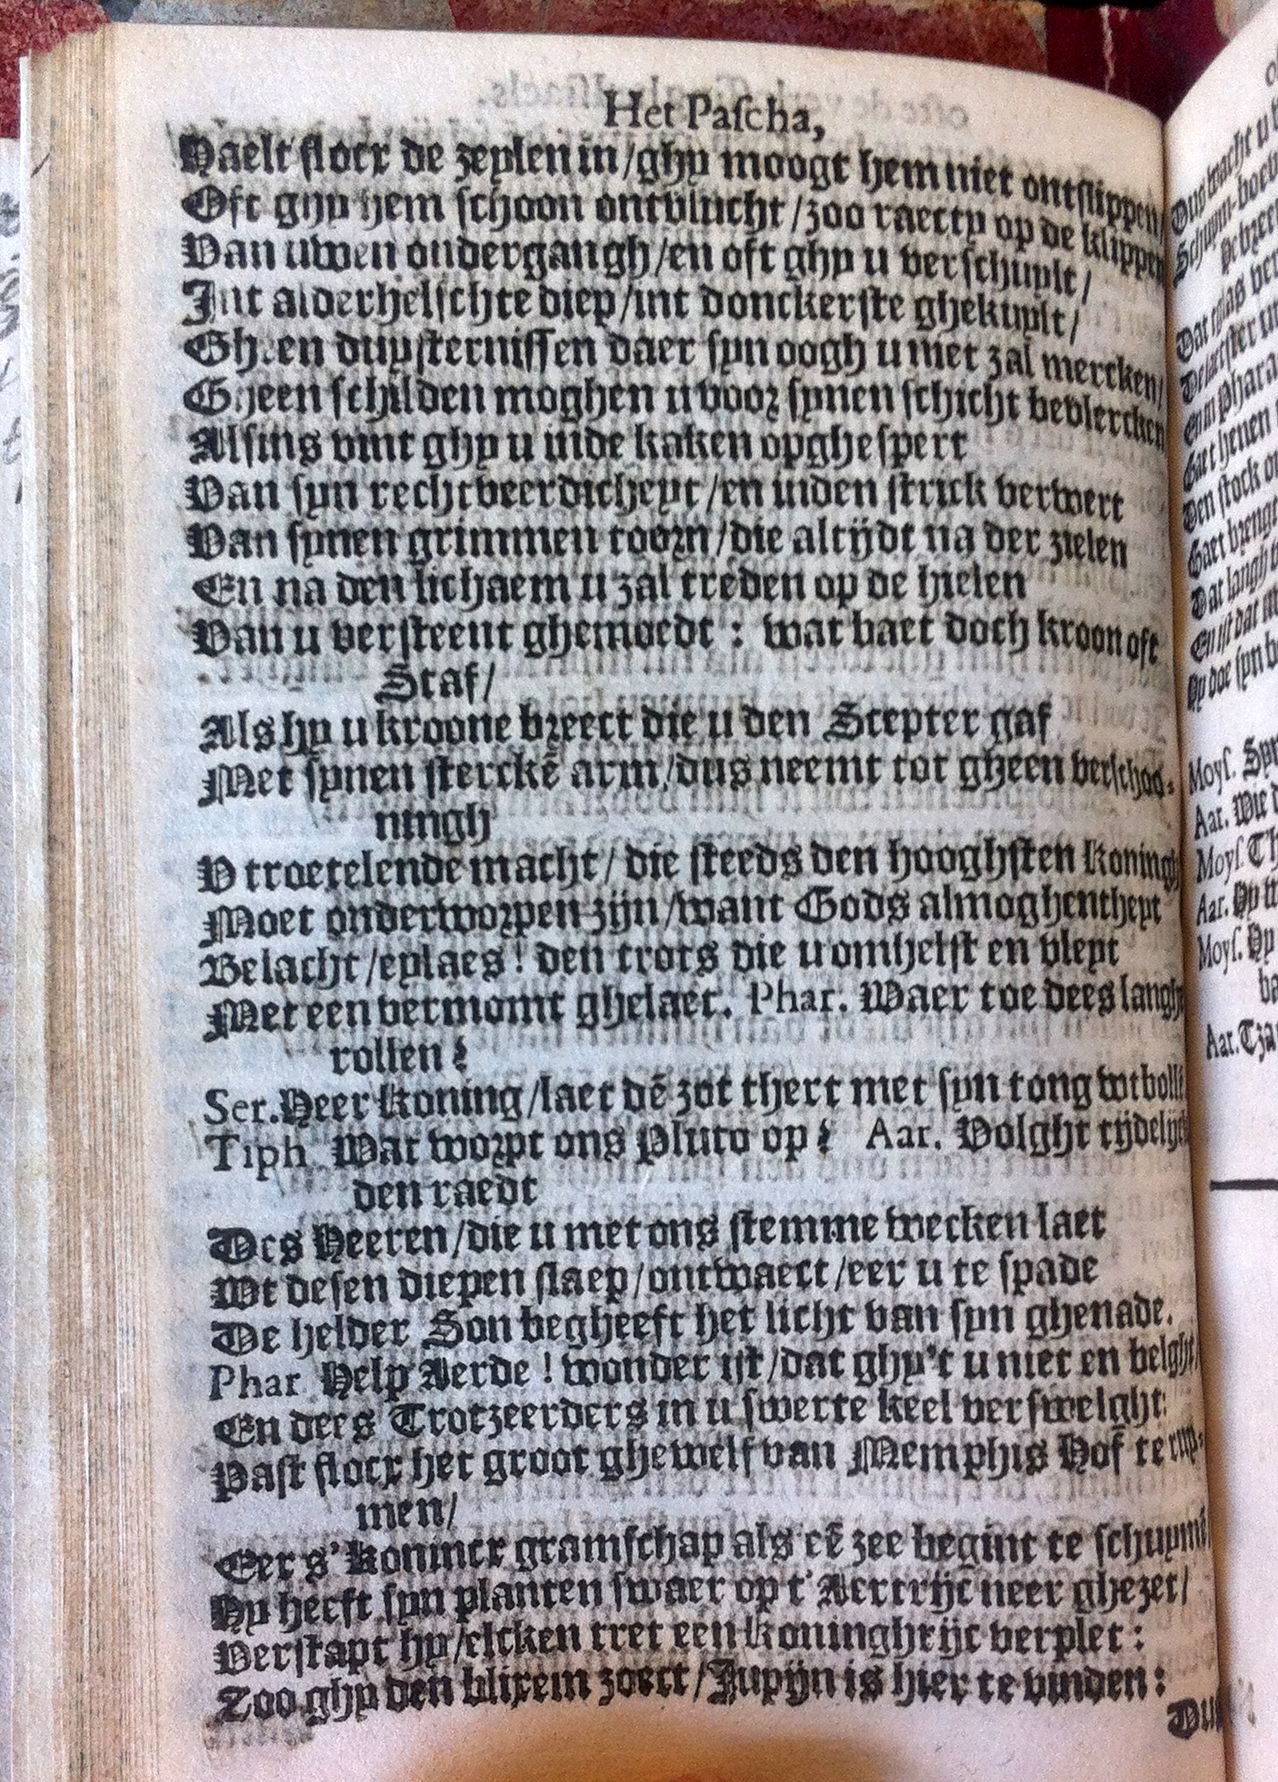 Het Pascha,
Haelt flocx de zeylen in/ghy moogt hem niet ontslippen/
Oft ghy hem schoon ontvlucht/zoo raectty op de klippen
Van uwen ondergangh/en oft ghy u verschuylt/
Int alderhelschte diep/int donckerste ghekuylt/
Gheen duysternissen daer syn oogh u niet zal mercken/
Gheen schilden moghen u voor synen schicht bevlercken
Alsins vint ghy u inde kaken opghespert
Van syn rechtveerdicheyt/en inden strick verwert
Van synen grimmen toorn/die altijdt na der zielen
En na den lichaem u zal treden op de hielen
Van u versteent ghemoedt: wat baet doch kroon oft
Staf/
Als hy u kroone breect die u den Scepter gaf
Met synen sterckē arm/dus neemt tot gheen verschoo-
ningh
V troetelende macht/ die steeds den hooghsten Koningh
Moet onderworpen zijn/want Gods almoghentheyt
Belacht/eylaes! den trots die u omhelst en vleyt
Met een vermomt ghelaet. Phar. Waer toe dees langhe
rollen?
Ser. Heer Koning/laet dē zot thert met syn tong wtbolle
Tiph. Wat worpt ons Pluto op? Aar. Volght tijdelyck
den raedt
Des Heeren/die u met ons stemme wecken laet
Wt desen diepen slaep/ontwaect/eer u te spade
De helder Son begheeft het licht van syn ghenade.
Phar Help Aerde! wonder ist/dat ghy't u niet en belght/
En dees Trotzeerders in u swerte keel verswelght:
Past flocx het groot ghewelf van Memphis Hof te ruy-
men/
Eer s'Konincx gramschap als eē zee begint te schuymē
Hy heeft syn planten swaer op t'Aertrijc neer ghezet/
Verstapt hy/elcken tret een Koninghrijc verplet:
Zoo ghy den blixem zoect/Jupijn is hier te vinden: